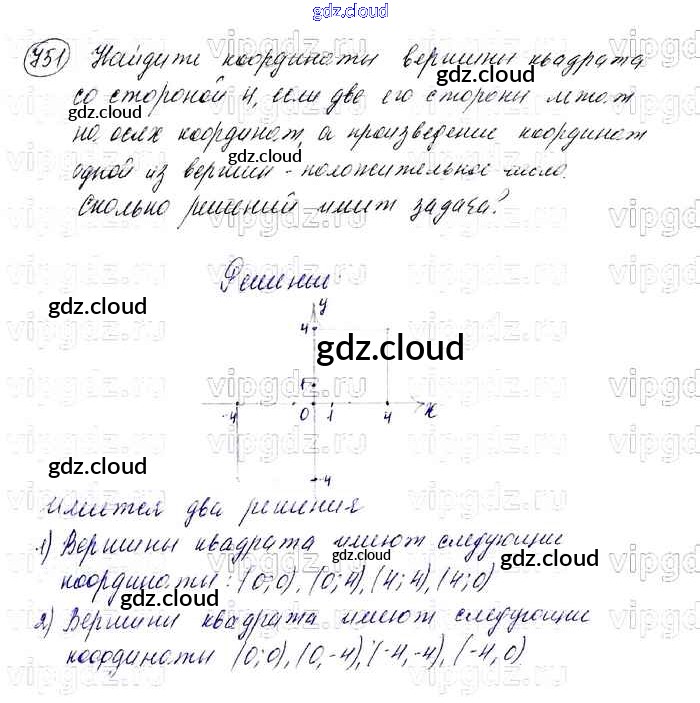 gdz.cloud
751 Найдите координаты вершины квадрата
gdz.cloud
со стороной 4, если две его стороны лежат
gdz.cloud
на осях координат, а произведение координат
gdz.cloud
одной из вершин - положительное число.
Сколько решений имеет задача?
gdz.cloud
vipgdz.ru
Решение:
gdz.cloud
y
4
gdz.cloud
1
-4 0 1 4 x
gdz.cloud
-4
Имеется два решения
gdz.cloud
1) Вершины квадрата имеют следующие
gdz.cloud
координаты: (0;0), (0;4), (4;4), (4;0)
gdz.cloud
2) Вершины квадрата имеют следующие
gdz.cloud
координаты (0;0), (0,-4), (-4,-4), (-4,0)